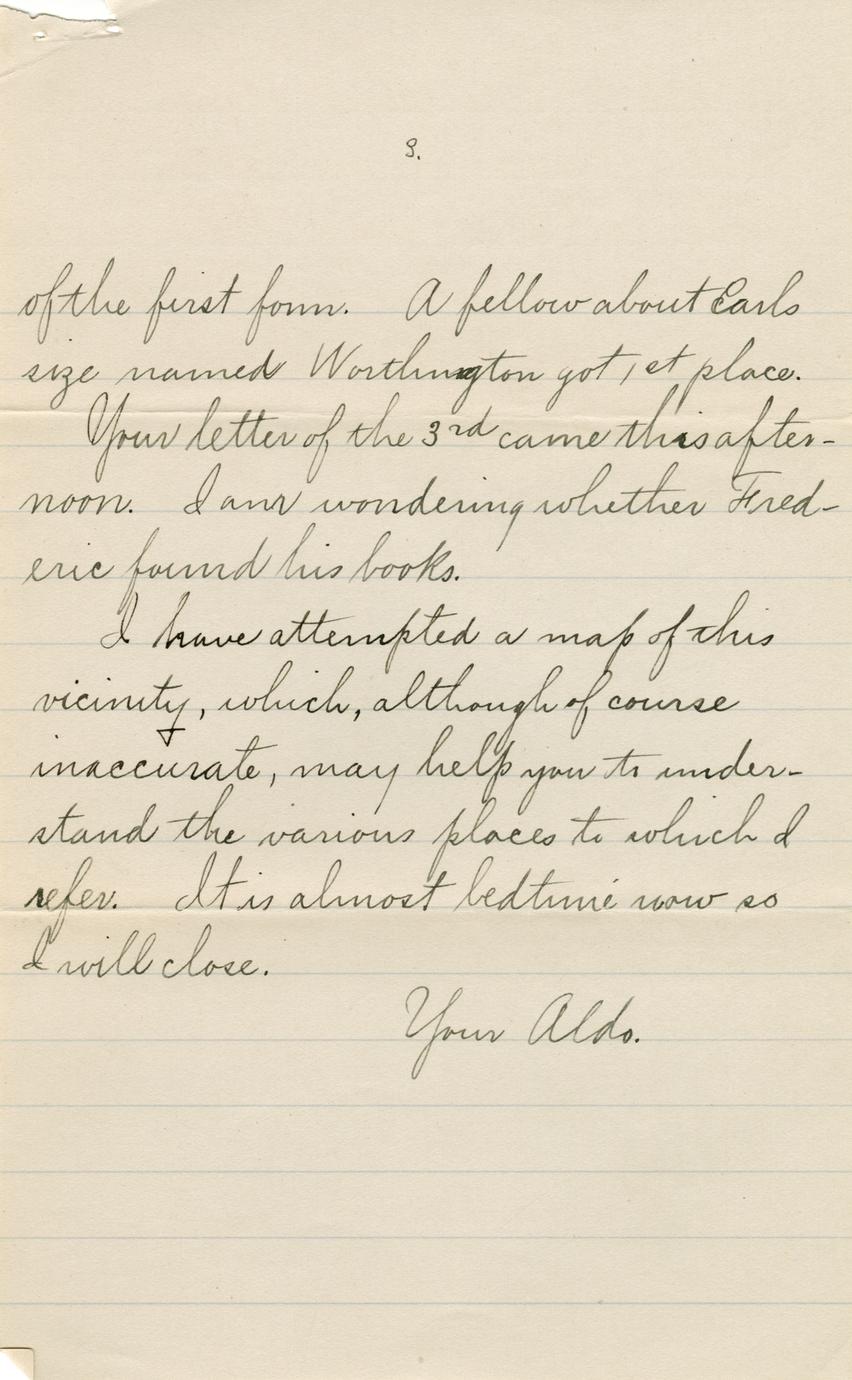 3.
of the first form. A fellow about Earls
size named Worthington got 1st place.
Your letter of the 3rd came this after-
noon. I am wondering whether Fred-
eric found his books.
I have attempted a map of this
vicinity, which, although of course
inaccurate, may help you to under-
stand the various places to which I
refer. It is almost bedtime now so
I will close.
Your Aldo.